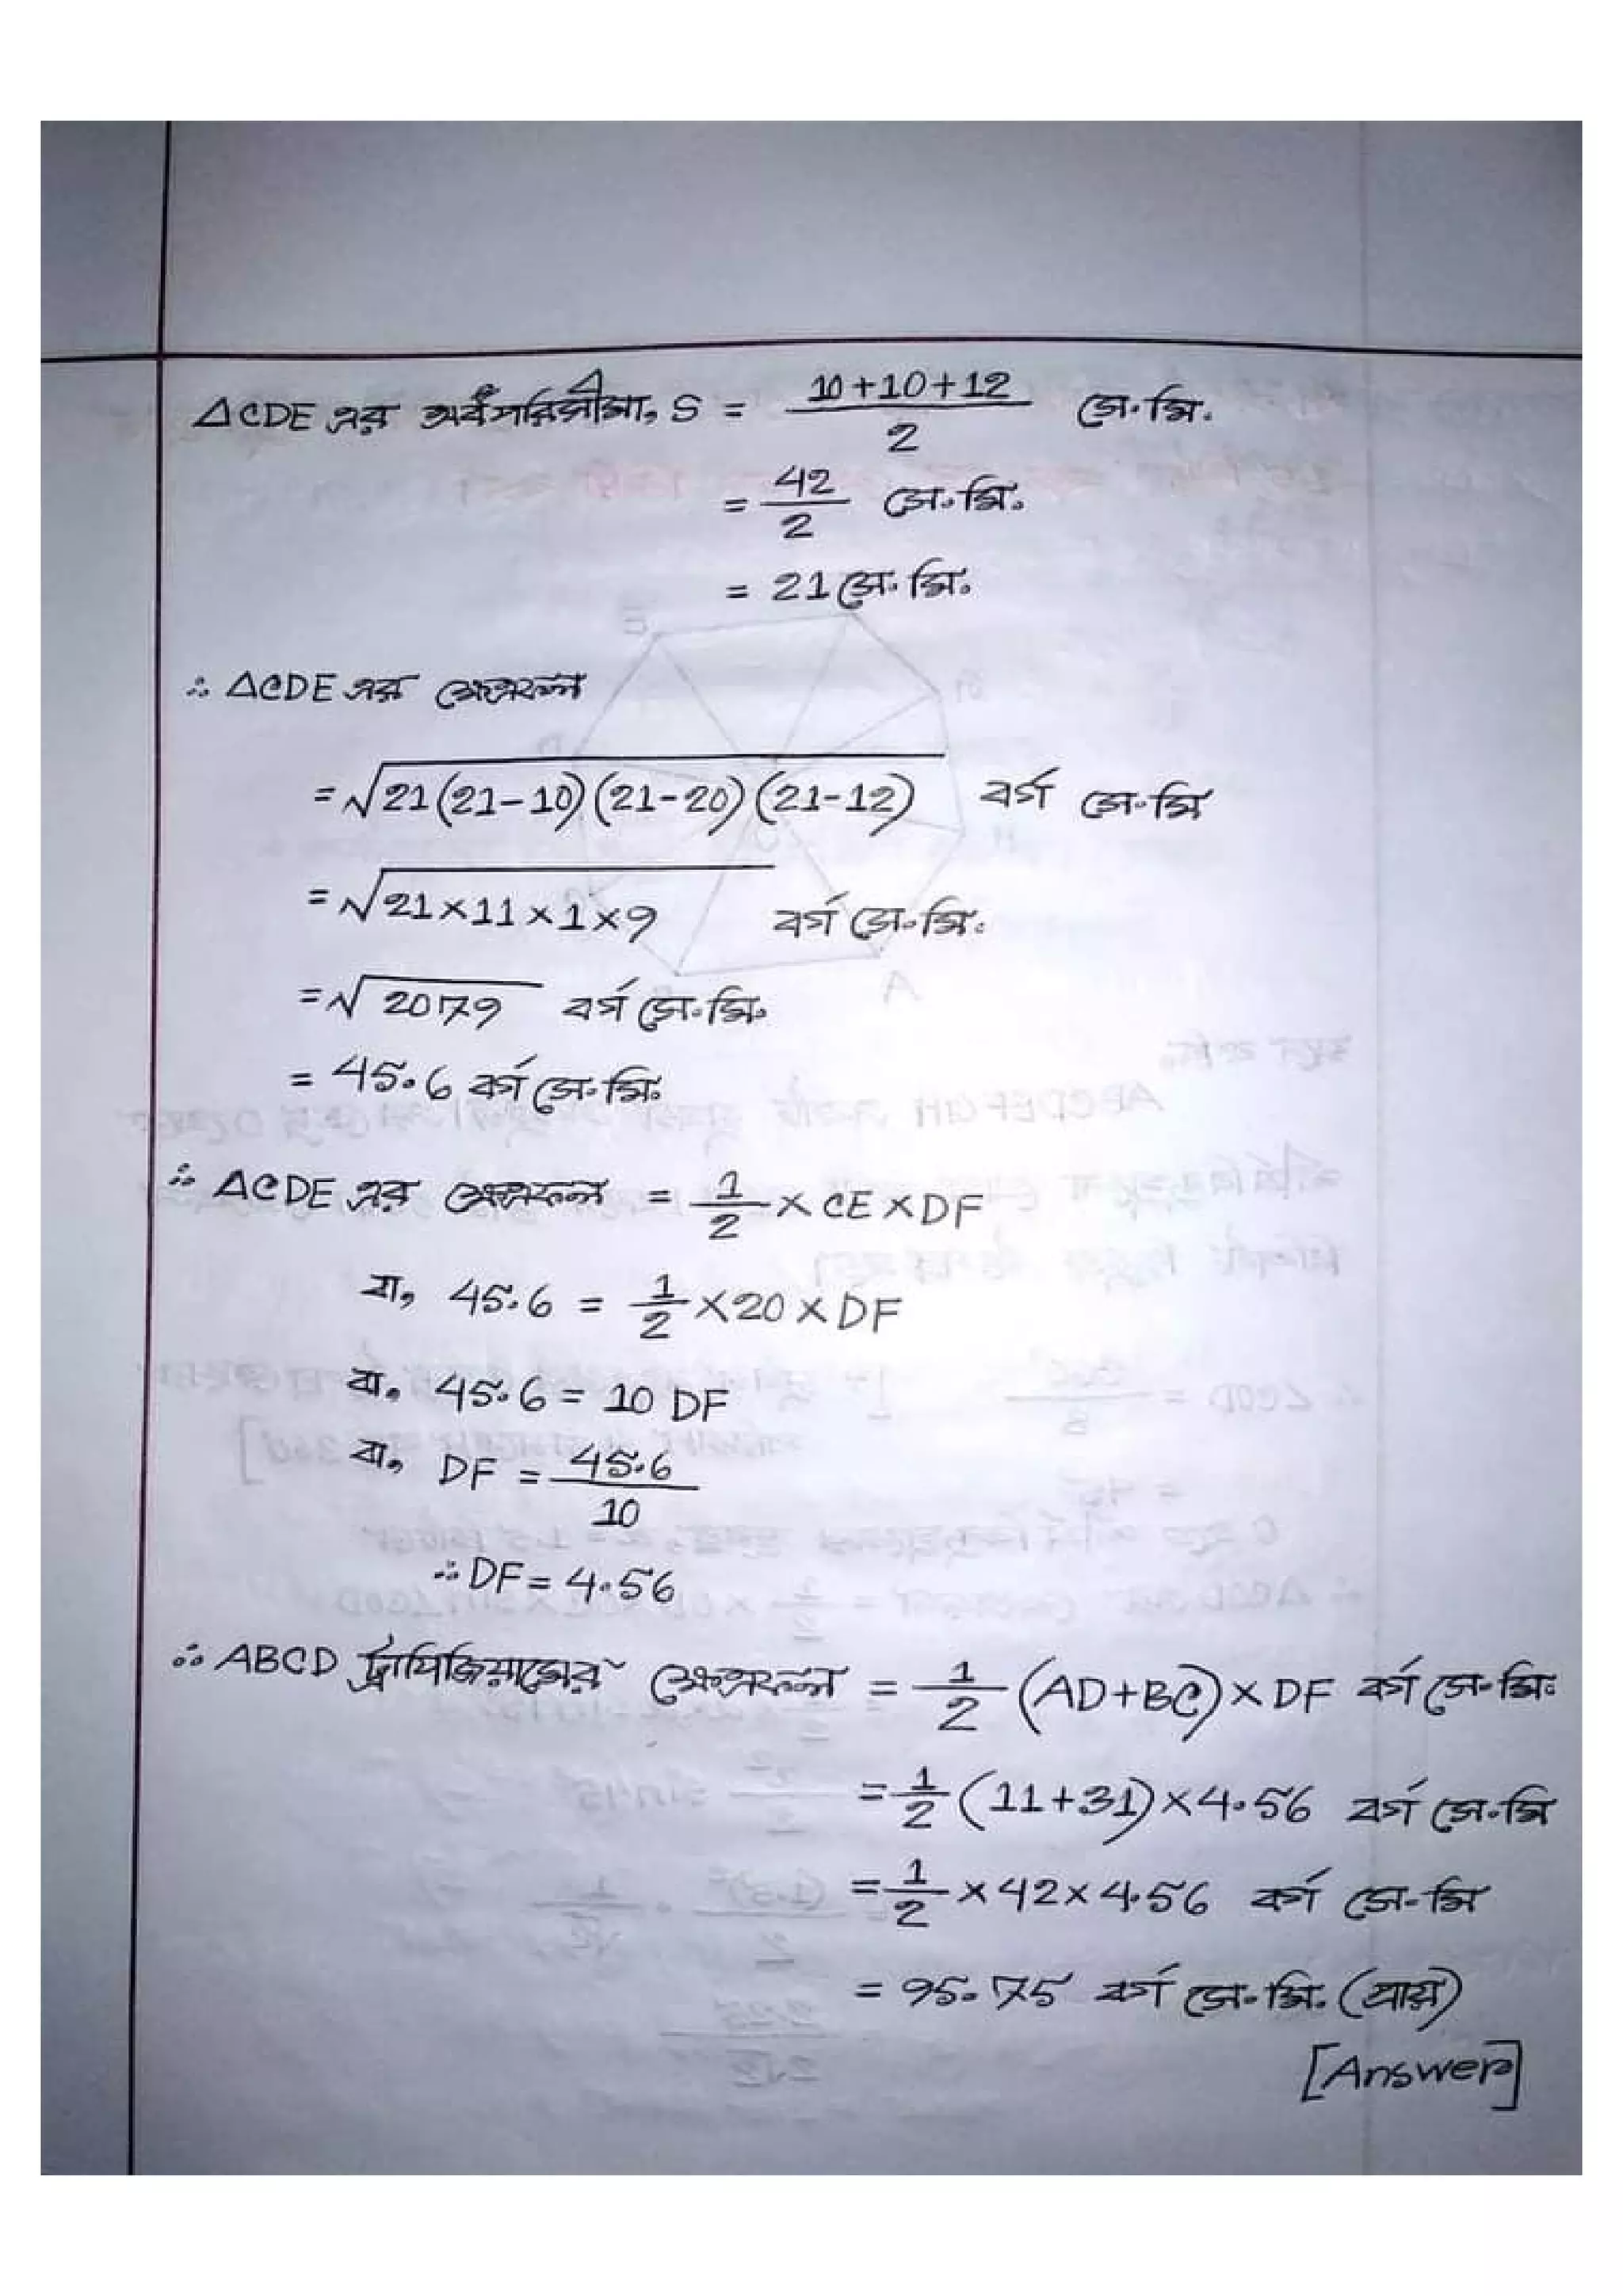 △CDE এর অর্ধপরিসীমা, S = 10+10+12/2 সে.মি.
= 42/2 সে.মি.
= 21 সে.মি.
∴ △CDE এর ক্ষেত্রফল
= √21(21-10)(21-20)(21-12) বর্গ সে.মি
= √21×11×1×9 বর্গ সে.মি.
= √2079 বর্গ সে.মি.
= 45.6 বর্গ সে.মি.
∴ △CDE এর ক্ষেত্রফল = 1/2 × CE × DF
বা, 45.6 = 1/2 × 20 × DF
বা, 45.6 = 10 DF
বা, DF = 45.6/10
∴ DF = 4.56
∴ ABCD ট্রাপিজিয়ামের ক্ষেত্রফল = 1/2 (AD+BC) × DF বর্গ সে.মি.
= 1/2 (11+31) × 4.56 বর্গ সে.মি
= 1/2 × 42 × 4.56 বর্গ সে.মি
= 95.75 বর্গ সে.মি. (প্রায়)
[Answer]